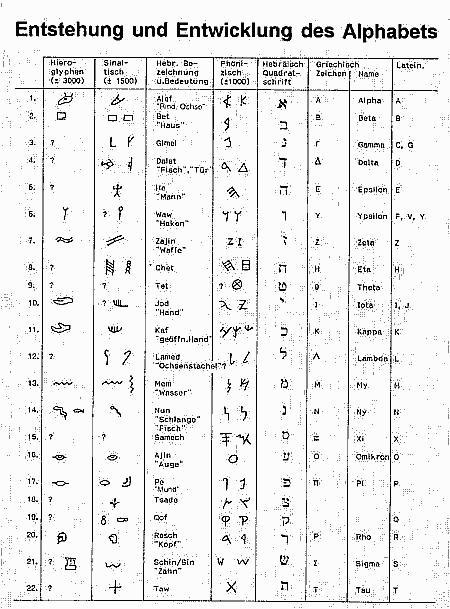 Entstehung und Entwicklung des Alphabets
Hiero- Sinai- Hebr. Be- Phöni- Hebräisch Griechisch Latein.
glyphen tisch zeichnung zisch Quadrat- Zeichen Name
(± 3000) (± 1500) u.Bedeutung (±1000) schrift
1. Alef א A Alpha A
"Rind, Ochse"
2. Bet ב B Beta B
"Haus"
3. ? Gimel ג Γ Gamma C, G
4. ? Dalet ד Δ Delta D
"Fisch","Tür"
5. ? He ה E Epsilon E
"Mann"
6. ? Waw ו Y Ypsilon F, V, Y
"Haken"
7. Zajin ז Z Zeta Z
"Waffe"
8. ? Chet ח H Eta H
9. ? ? Tet ? ט Theta
10. ? Jod י I Iota I, J
"Hand"
11. Kaf כ K Kappa K
"geöffn.Hand"
12. ? Lamed ל Λ Lambda L
"Ochsenstachel"?
13. Mem מ M My M
"Wasser"
14. Nun נ N Ny N
"Schlange"
"Fisch"
15. ? ? Samech ס Ξ Xi X
16. Ajin ע O Omikron O
"Auge"
17. Pe פ Π Pi P
"Mund"
18. ? Tsade צ
19. ? Qof ק Q
20. Rosch ר P Rho R
"Kopf"
21. ? Schin/Sin ש Σ Sigma S
"Zahn"
22. ? Taw ת T Tau T